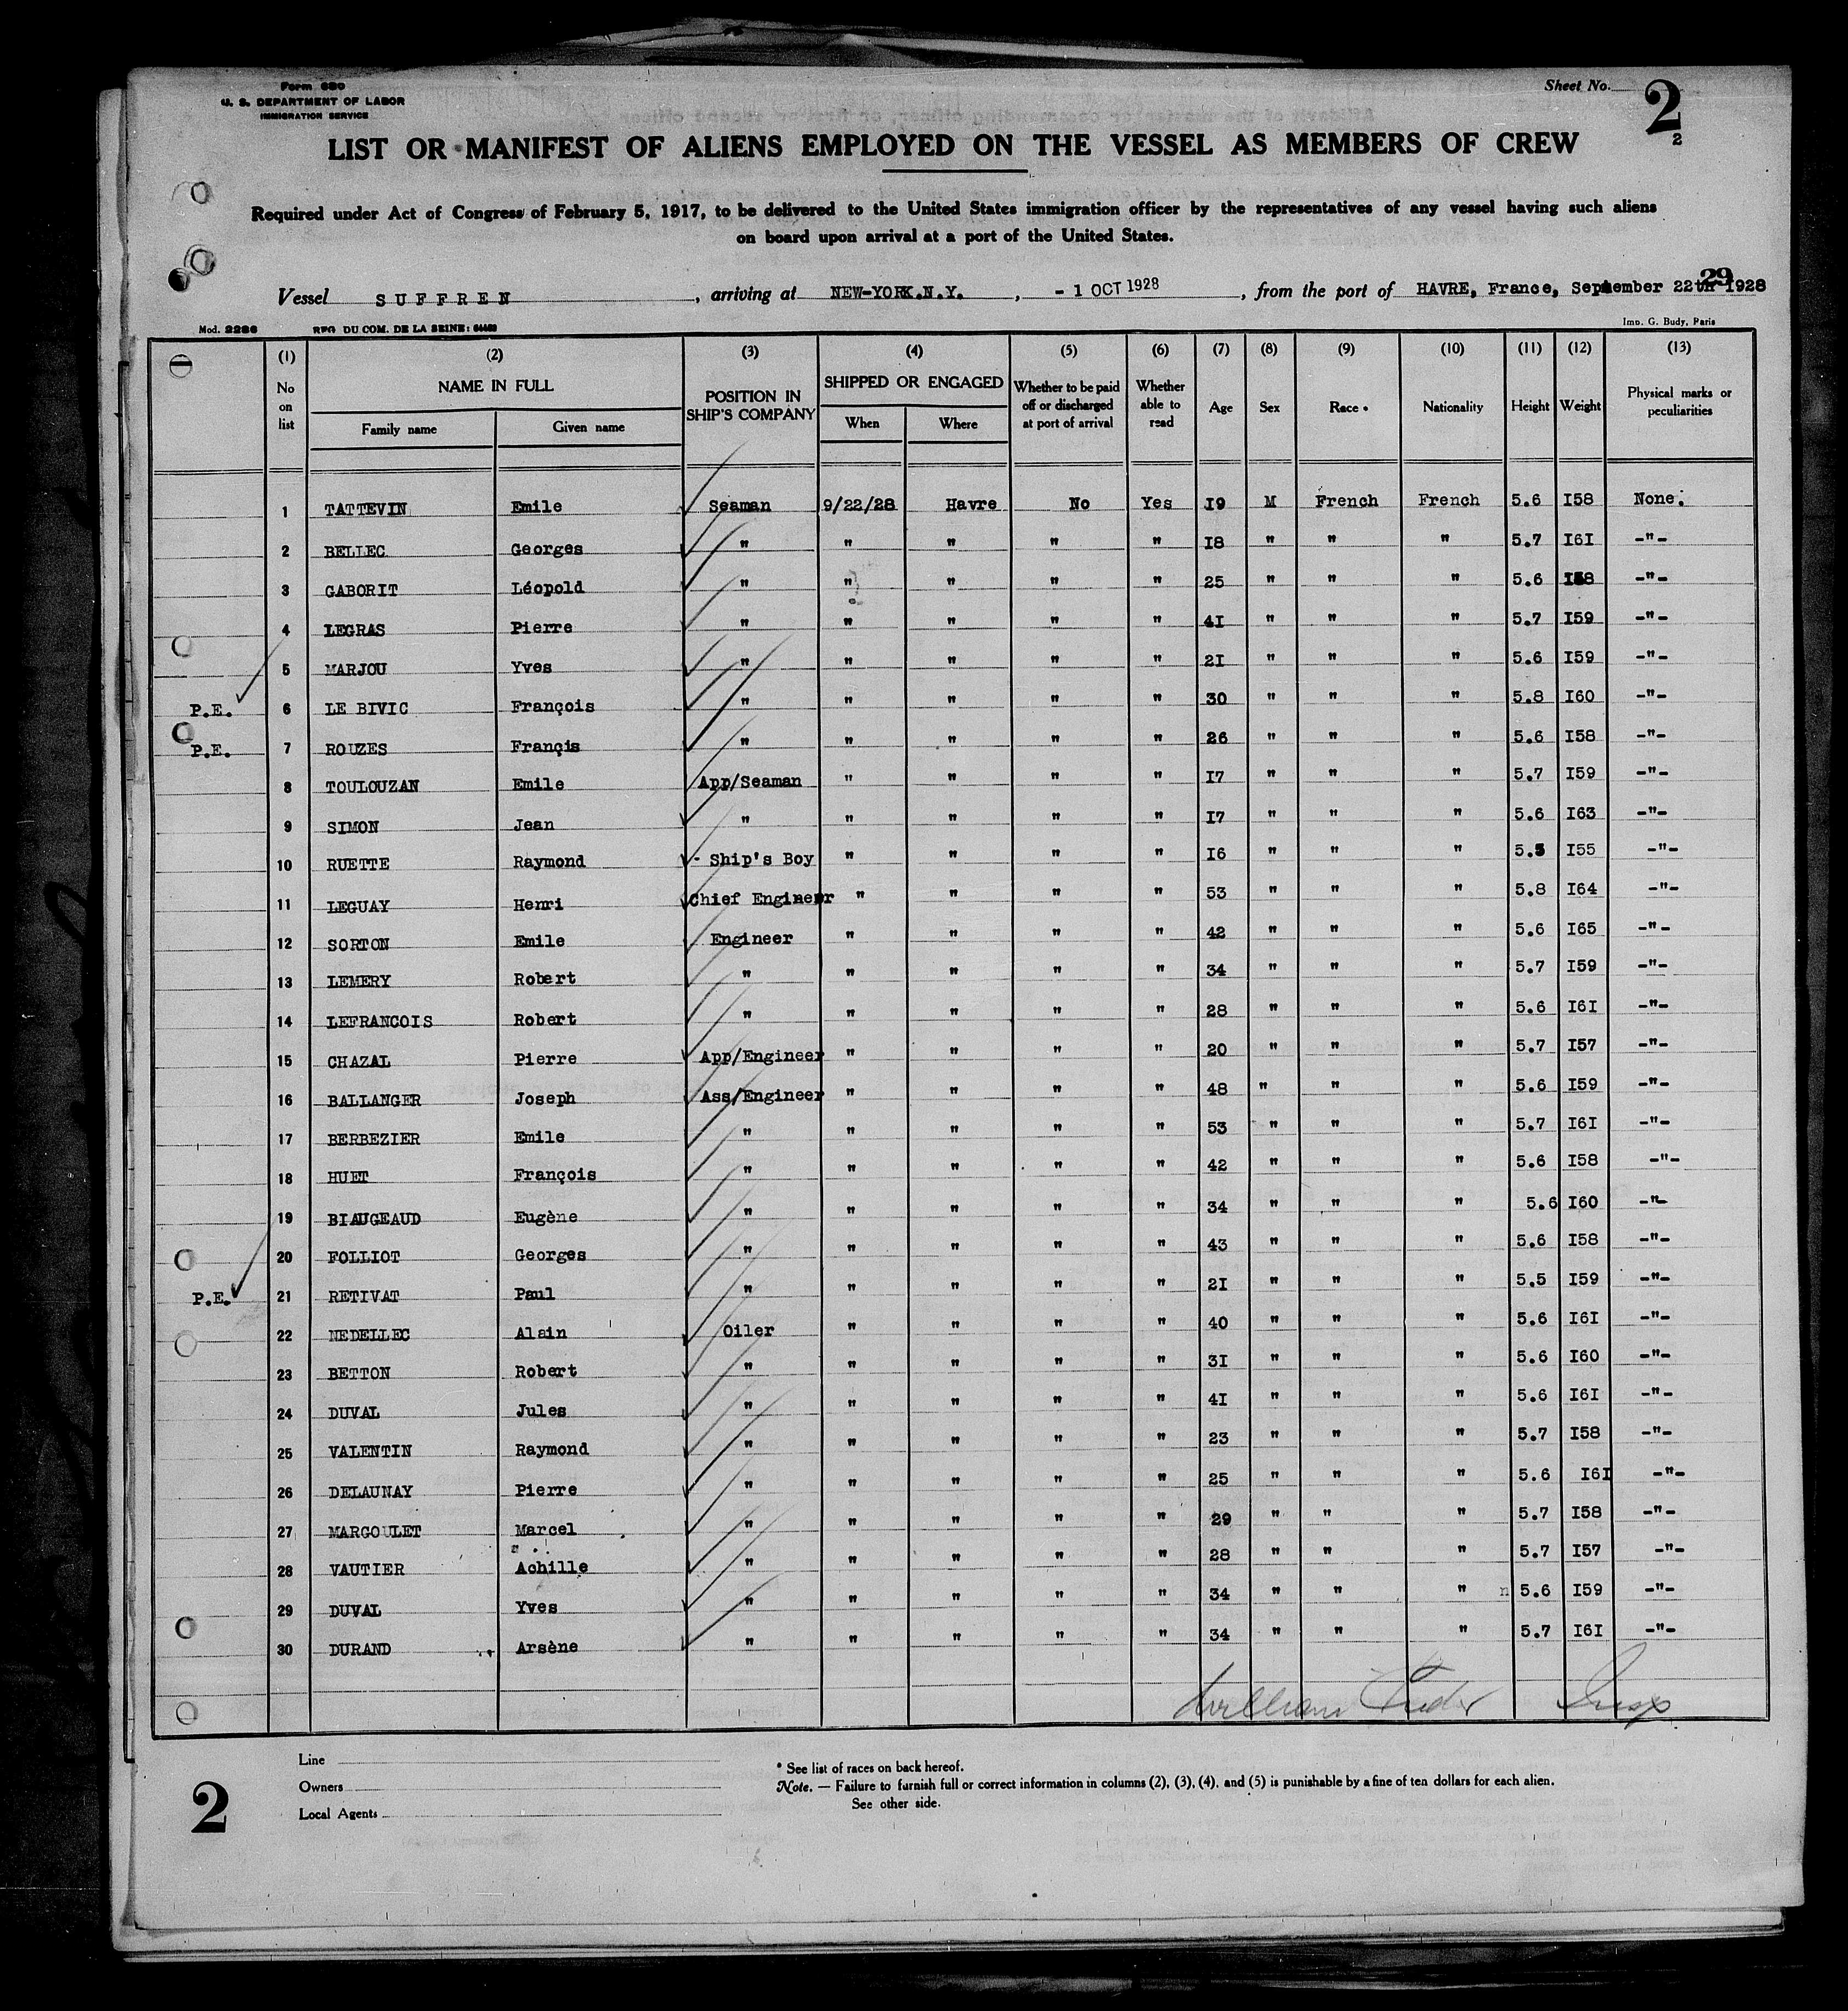 Form 689
U. S. DEPARTMENT OF LABOR
IMMIGRATION SERVICE
Sheet No. 2
2
LIST OR MANIFEST OF ALIENS EMPLOYED ON THE VESSEL AS MEMBERS OF CREW
Required under Act of Congress of February 5, 1917, to be delivered to the United States immigration officer by the representatives of any vessel having such aliens
on board upon arrival at a port of the United States.
29
Vessel SUFFREN, arriving at NEW-YORK.N.Y., - 1 OCT 1928, from the port of HAVRE, France, September 22th 1928
Mod. 2286 REG. DU COM. DE LA SEINE: 64469 Imp. G. Budy, Paris
(1) (2) (3) (4) (5) (6) (7) (8) (9) (10) (11) (12) (13)
No on list NAME IN FULL Family name Given name POSITION IN SHIP'S COMPANY SHIPPED OR ENGAGED When Where Whether to be paid off or discharged at port of arrival Whether able to read Age Sex Race * Nationality Height Weight Physical marks or peculiarities
1 TATTEVIN Emile Seaman 9/22/28 Havre No Yes I9 M French French 5.6 I58 None.
2 BELLEC Georges " " " " " I8 " " " 5.7 I6I -"-
3 GABORIT Léopold " " " " " 25 " " " 5.6 I58 -"-
4 LEGRAS Pierre " " " " " 4I " " " 5.7 I59 -"-
5 MARJOU Yves " " " " " 2I " " " 5.6 I59 -"-
P.E. 6 LE BIVIC François " " " " " 30 " " " 5.8 I60 -"-
P.E. 7 ROUZES Françis " " " " " 26 " " " 5.6 I58 -"-
8 TOULOUZAN Emile App/Seaman " " " " I7 " " " 5.7 I59 -"-
9 SIMON Jean " " " " " I7 " " " 5.6 I63 -"-
10 RUETTE Raymond - Ship's Boy " " " " I6 " " " 5.5 I55 -"-
11 LEGUAY Henri Chief Engineer " " " " 53 " " " 5.8 I64 -"-
12 SORTON Emile Engineer " " " " 42 " " " 5.6 I65 -"-
13 LEMERY Robert " " " " " 34 " " " 5.7 I59 -"-
14 LEFRANCOIS Robert " " " " " 28 " " " 5.6 I6I -"-
15 CHAZAL Pierre App/Engineer " " " " 20 " " " 5.7 I57 -"-
16 BALLANGER Joseph Ass/Engineer " " " " 48 " " " 5.6 I59 -"-
17 BERBEZIER Emile " " " " " 53 " " " 5.7 I6I -"-
18 HUET François " " " " " 42 " " " 5.6 I58 -"-
19 BIAUGEAUD Eugène " " " " " 34 " " " 5.6 I60 -"-
20 FOLLIOT Georges " " " " " 43 " " " 5.6 I58 -"-
P.E. 21 RETIVAT Paul " " " " " 2I " " " 5.5 I59 -"-
22 NEDELLEC Alain Oiler " " " " 40 " " " 5.6 I6I -"-
23 BETTON Robert " " " " " 3I " " " 5.6 I60 -"-
24 DUVAL Jules " " " " " 4I " " " 5.6 I6I -"-
25 VALENTIN Raymond " " " " " 23 " " " 5.7 I58 -"-
26 DELAUNAY Pierre " " " " " 25 " " " 5.6 I6I -"-
27 MARGOULET Marcel " " " " " 29 " " " 5.7 I58 -"-
28 VAUTIER Achille " " " " " 28 " " " 5.7 I57 -"-
29 DUVAL Yves " " " " " 34 " " " n 5.6 I59 -"-
30 DURAND Arsène " " " " " 34 " " " 5.7 I6I -"-
William Insp
Line
Owners
Local Agents
* See list of races on back hereof.
Note. — Failure to furnish full or correct information in columns (2), (3), (4), and (5) is punishable by a fine of ten dollars for each alien.
See other side.
2